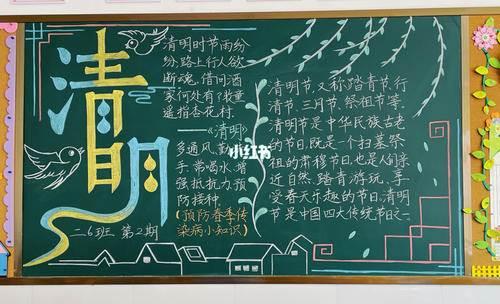 清明
清明时节雨纷
纷,路上行人欲
断魂。借问酒
家何处有?牧童
遥指杏花村。
——《清明》
多通风,勤洗
手,常喝水,增
强抵抗力,预
防接种。
(预防春季传
染病小知识)
二.6班 第2期
小红书
清明节,又称踏青节、行
清节、三月节、祭祖节等。
清明节是中华民族古老
的节日,既是一个扫墓祭
祖的肃穆节日,也是人们亲
近自然、踏青游玩、享
受春天乐趣的节日。清明
节是中国四大传统节日之一